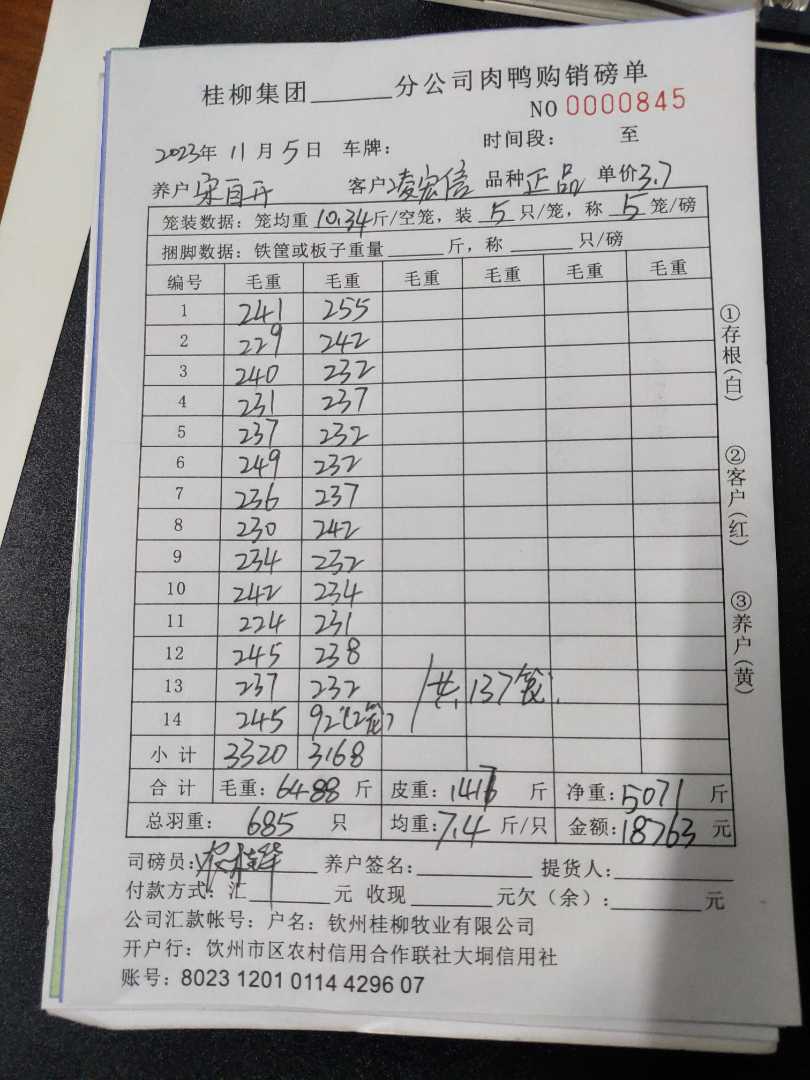 桂柳集团______分公司肉鸭购销磅单
NO 0000845
2023年 11月 5日 车牌: 时间段: 至
养户 宋自开 客户 凌宏信 品种 正品 单价3.7
笼装数据: 笼均重 10.34斤/空笼, 装 5 只/笼, 称 5 笼/磅
捆脚数据: 铁筐或板子重量______斤, 称______只/磅
编号 毛重 毛重 毛重 毛重 毛重 毛重
1 241 255
2 229 242
3 240 232
4 231 237
5 237 232
6 249 232
7 236 237
8 230 242
9 234 232
10 242 234
11 224 231
12 245 238
13 237 232 共137笼.
14 245 92(2笼)
小计 3320 3168
合计 毛重: 6488 斤 皮重: 1417 斤 净重: 5071 斤
总羽重: 685 只 均重: 7.4 斤/只 金额: 18763 元
司磅员: 养户签名: 提货人:
付款方式: 汇______元 收现______元欠(余):______元
公司汇款帐号: 户名: 钦州桂柳牧业有限公司
开户行: 饮州市区农村信用合作联社大垌信用社
账号: 8023 1201 0114 4296 07
①存根(白)
②客户(红)
③养户(黄)